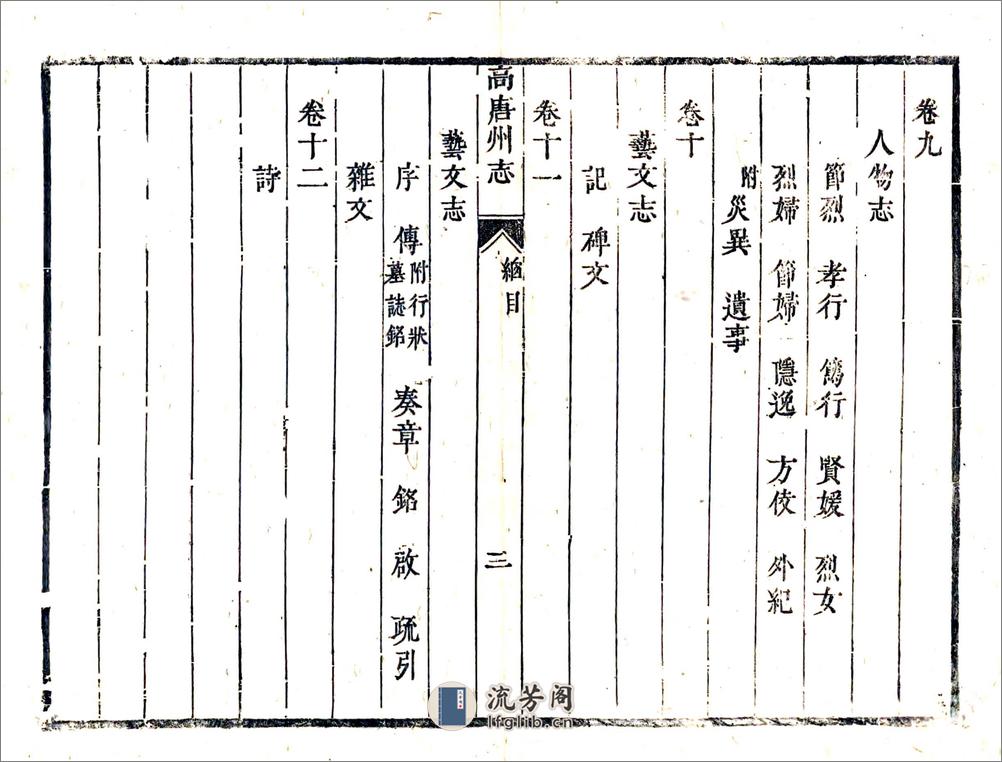 卷九
人物志
節烈 孝行 儁行 賢媛 烈女
烈婦 節婦 隱逸 方伎 外紀
附災異 遺事
卷十
藝文志
記 碑文
卷十一
高唐州志 緬目 三
藝文志
序 傳附行狀墓誌銘 奏章 銘 啟 疏引
雜文
卷十二
詩
流芳阁
lfglib.cn